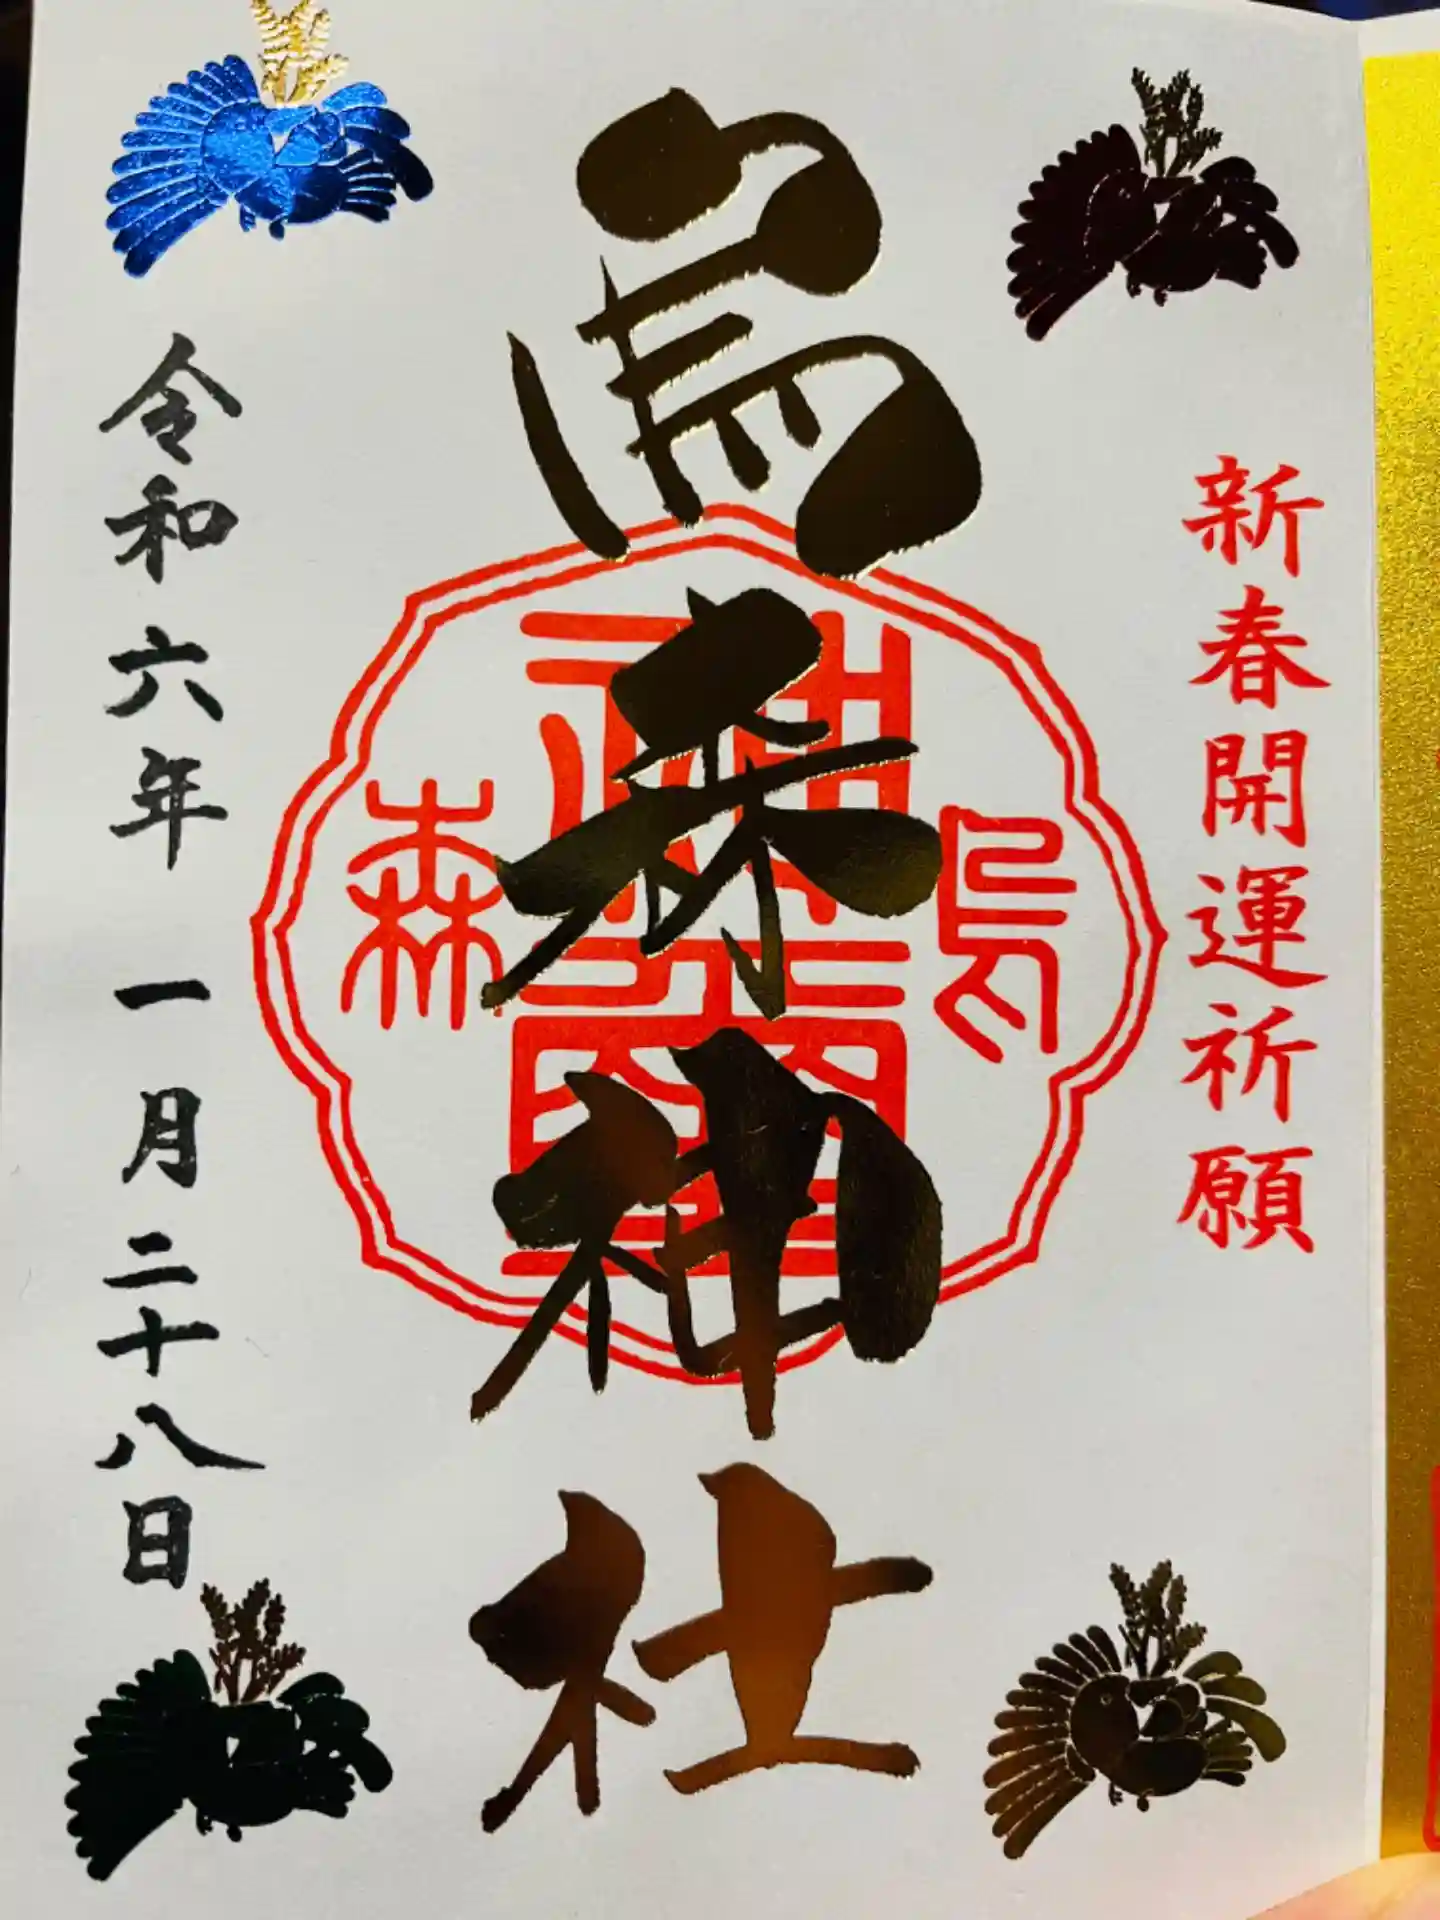 新春開運祈願
烏森神社
烏森
神璽
令和六年一月二十八日